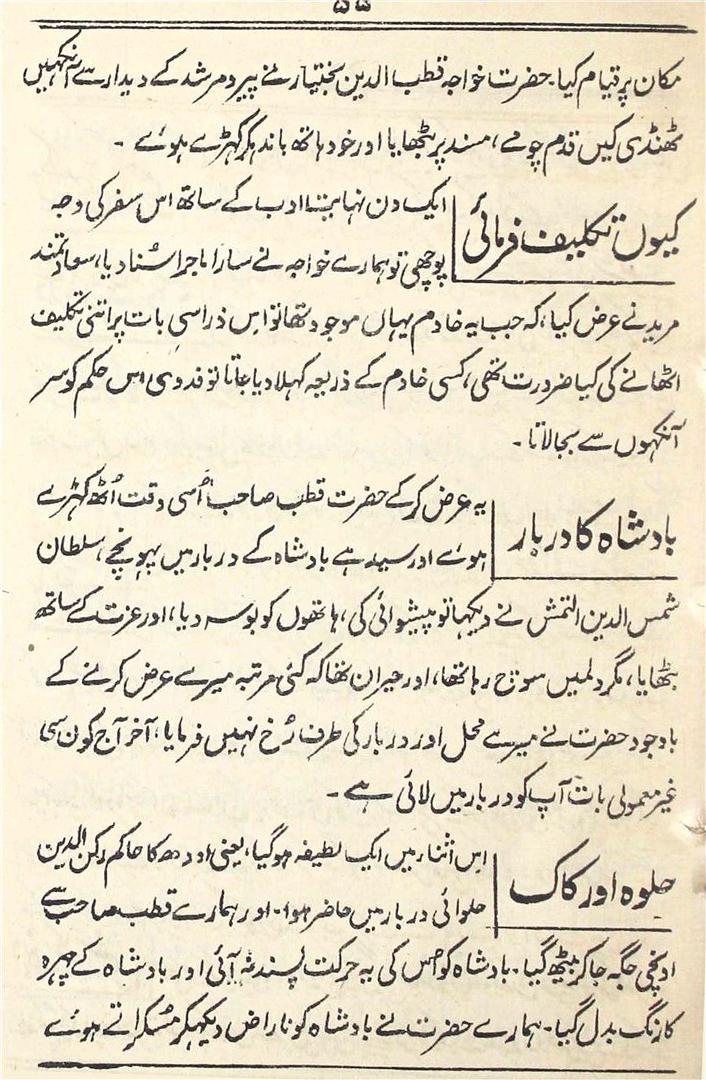 ۵۵
مکان پر قیام کیا۔ حضرت خواجہ قطب الدین بختیارؒ نے پیر و مرشد کے دیدار سے آنکھیں
ٹھنڈی کیں قدم چومے، مسند پر بٹھایا اور خود ہاتھ باندہکر کہڑے ہوئے ۔
کیوں تکلیف فرمائی
ایک دن نہایت ادب کے ساتھ اس سفر کی وجہ
پوچھی تو ہمارے خواجہ نے سارا ماجرا سُنا دیا، سعادتمند
مرید نے عرض کیا، کہ جب یہ خادم یہاں موجود تھا تو اس ذرا سی بات پر اتنی تکلیف
اٹھانے کی کیا ضرورت تھی، کسی خادم کے ذریعہ کہلا دیا جاتا تو فدوی اس حکم کو سر
آنکہوں سے بجا لاتا ۔
بادشاہ کا دربار
یہ عرض کر کے حضرت قطب صاحبؒ اُسی وقت اُٹھ کہڑے
ہوئے اور سیدہے بادشاہ کے دربار میں پہونچے، سلطان
شمس الدین التمش نے دیکہا تو پیشوائی کی، ہاتھوں کو بوسہ دیا، اور عزت کے ساتھ
بٹھایا، مگر دلمیں سوچ رہا تھا، اور حیران تھا کہ کئی مرتبہ میرے عرض کرنے کے
باوجود حضرت نے میرے محل اور دربار کی طرف رُخ نہیں فرمایا، آخر آج کون سی
غیر معمولی بات آپ کو دربار میں لائی ہے ۔
حلوہ اور کاک
اس اثنا میں ایک لطیفہ ہو گیا، یعنی اودھ کا حاکم رکن الدین
حلوائی دربار میں حاضر ہوا۔ اور ہمارے قطب صاحب سے
اونچی جگہ جا کر بیٹھ گیا۔ بادشاہ کو اس کی یہ حرکت پسند نہ آئی اور بادشاہ کے چہرہ
کا رنگ بدل گیا۔ ہمارے حضرت نے بادشاہ کو ناراض دیکہکر مُسکراتے ہوئے